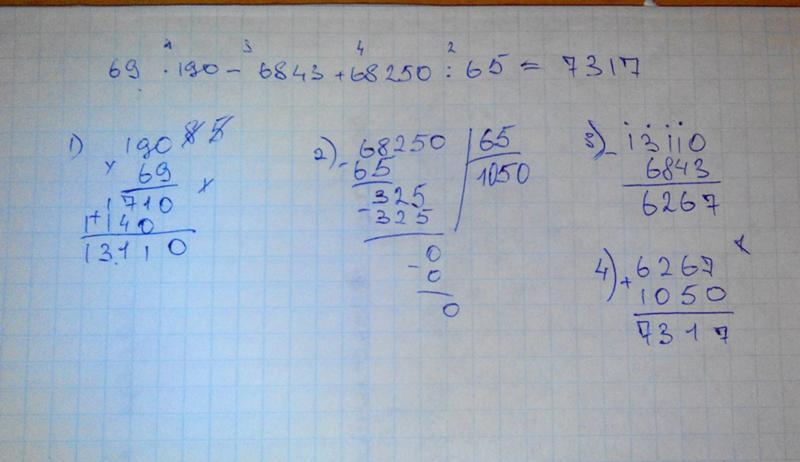 1 3 4 2
69 · 190 – 6843 + 68250 : 65 = 7317
1) 190
× 69
1710
+
1140
13110
2) 68250 | 65
– 65 1050
325
– 325
0
– 0
0
3) – 13110
6843
6267
4) + 6267
1050
7317